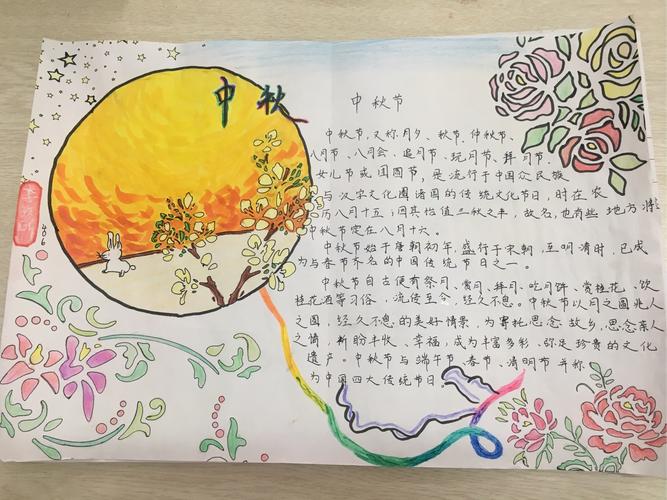 中秋
406
中秋节
中秋节，又称月夕、秋节、仲秋节、
八月节、八月会、追月节、玩月节、拜月节、
女儿节或团圆节，是流行于中国众民族
与汉字文化圈诸国的传统文化节日，时在农
历八月十五；因其恰值三秋之半，故名，也有些地方将
中秋节定在八月十六。
中秋节始于唐朝初年，盛行于宋朝，至明清时，已成
为与春节齐名的中国传统节日之一。
中秋节自古便有祭月、赏月、拜月、吃月饼、赏桂花、饮
桂花酒等习俗，流传至今，经久不息。中秋节以月之圆兆人
之圆，经久不息的美好情景，为寄托思念故乡，思念亲人
之情，祈盼丰收、幸福，成为丰富多彩、弥足珍贵的文化
遗产。中秋节与端午节、春节、清明节并称
为中国四大传统节日